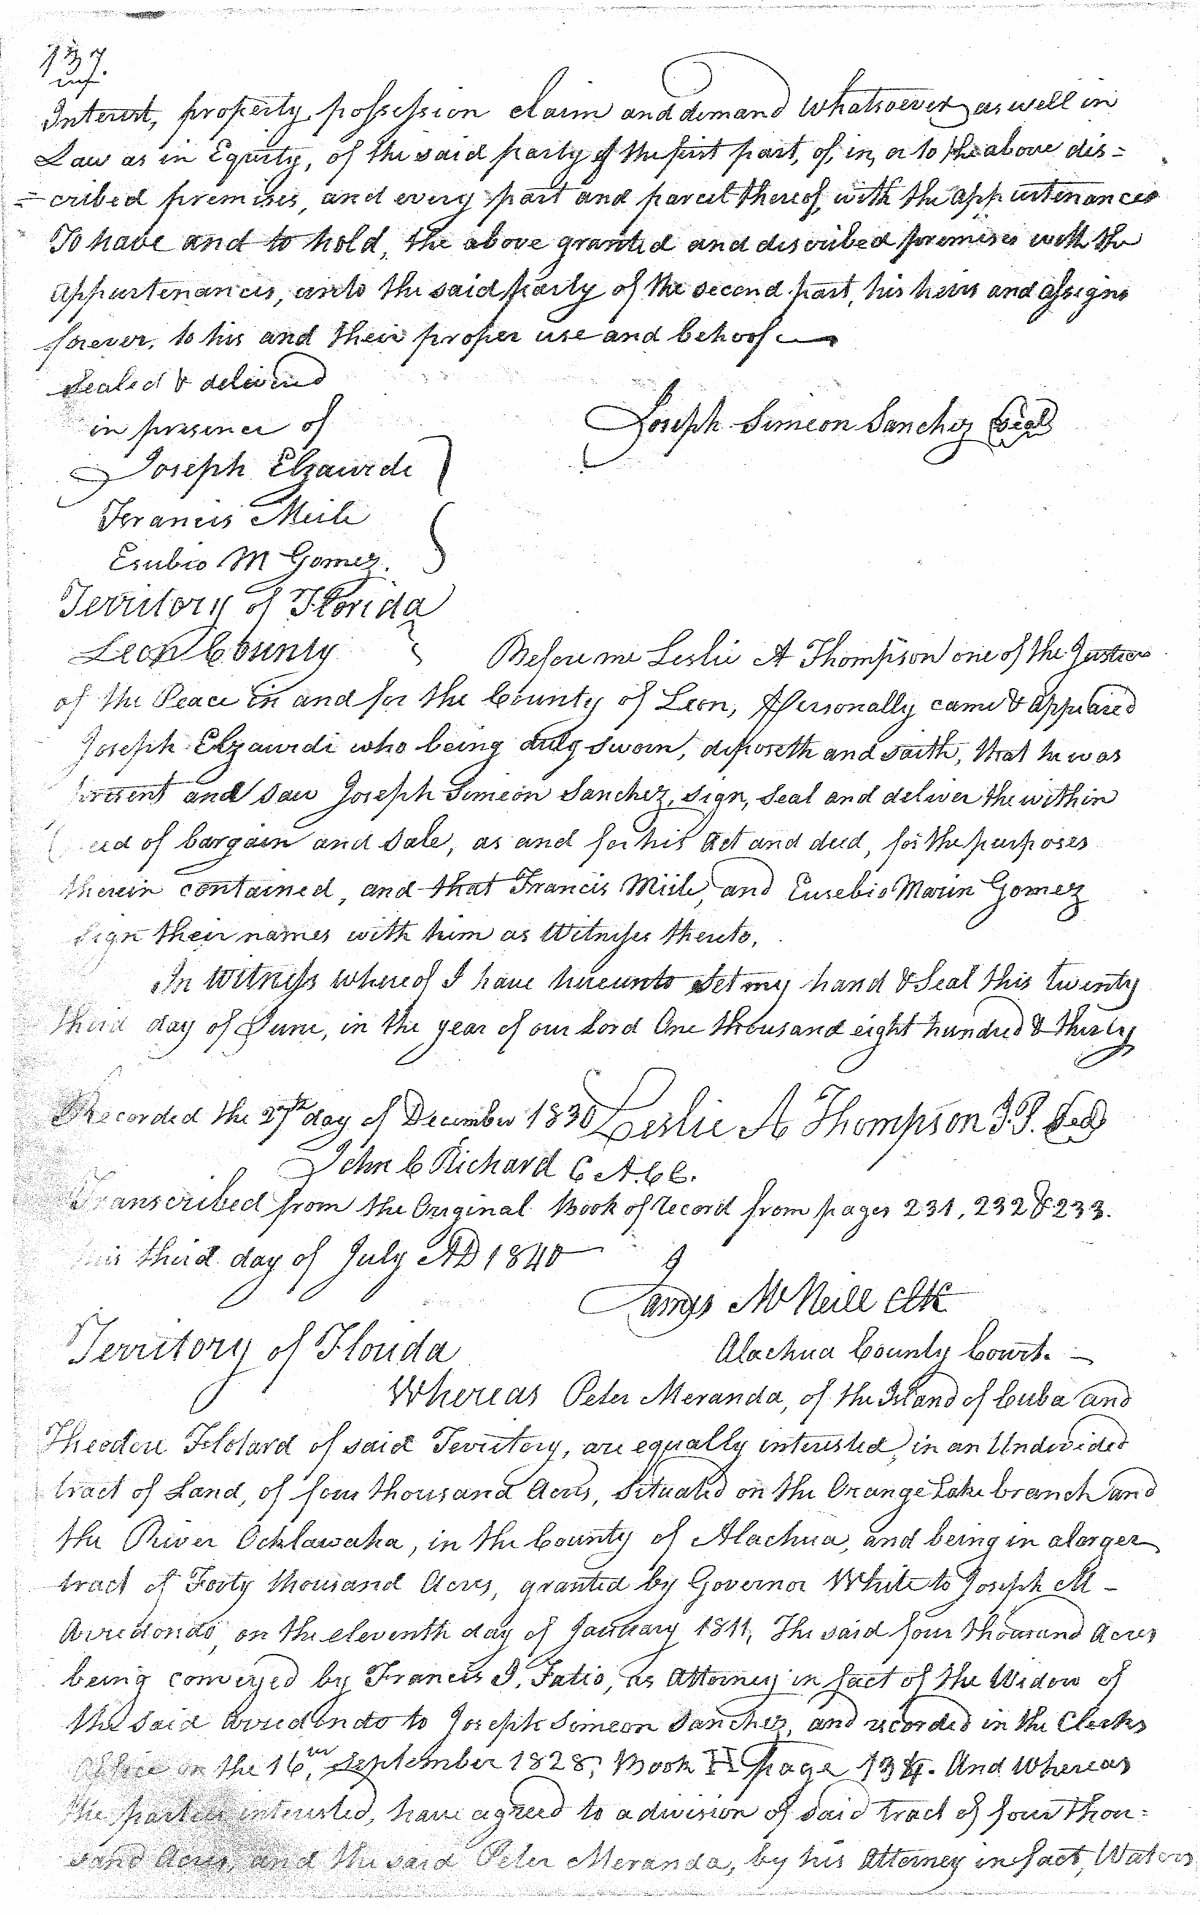 137.
Interest, property, possession claim and demand whatsoever as well in
Law as in Equity, of the said party of the first part, of, in, or to the above dis=
=cribed premises, and every part and parcel thereof, with the appurtenances
To have and to hold, the above granted and discribed premises with the
appurtenances, unto the said party of the second part, his heirs and assigns
forever, to his and their proper use and behoof
Sealed & delivered
in presence of
Joseph Simeon Sanchez Seal
Joseph Elzaurdi
Francis Meile
Esubio M Gomez.
Territory of Florida
Leon County
Before me Leslie A Thompson one of the Justices
of the Peace in and for the County of Leon, Personally came & appeared
Joseph Elzaurdi who being duly sworn, deposeth and saith, that he was
present and saw Joseph Simeon Sanchez, sign, seal and deliver the within
deed of bargain and sale, as and for his act and deed, for the purposes
therein contained, and that Francis Miile, and Eusebio Marin Gomez
sign their names with him as Witnesses thereto.
In Witness whereof I have hereunto set my hand & Seal this twenty
third day of June, in the year of our Lord One thousand eight hundred & thirty
Recorded the 27th day of December 1830 Leslie A Thompson J.P. Seal
John C Richard C A.C C.
Transcribed from the Original Book of record from pages 231, 232 & 233.
this third day of July AD 1840
James McNeill Clk
Territory of Florida
Alachua County Court. —
Whereas Peter Meranda, of the Island of Cuba and
Theodore Flotard of said Territory, are equally interested, in an Undivided
tract of Land, of four thousand Acres, situated on the Orange Lake branch and
the River Ocklawaha, in the County of Alachua, and being in a larger
tract of Forty thousand Acres, granted by Governor White to Joseph M —
Arredondo, on the eleventh day of January 1811, The said four thousand Acres
being conveyed by Francis J. Fatio, as Attorney in fact of the Widow of
the said Arredondo to Joseph Simeon Sanchez, and recorded in the Clerks
Office on the 16th, September 1828, Book H page 134. And Whereas
the parties interested, have agreed to a division of said tract of four thou=
sand Acres, and the said Peter Meranda, by his Attorney in fact, Waters